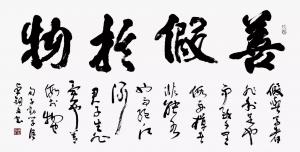 善假於物
假舆马者
非利足也
而致千里
假舟楫者
非能水也
而绝江
河
君子生非
异也善
假於物也
荀子劝学